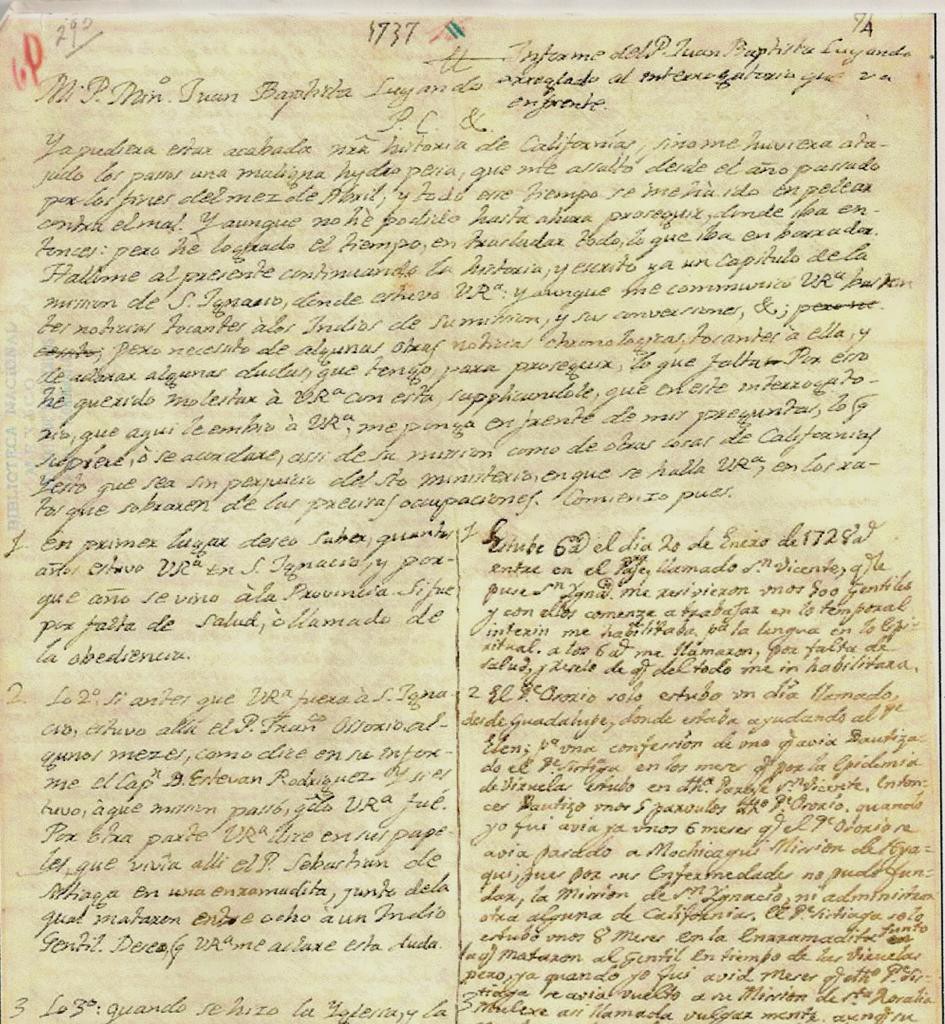 290
1737
74
Informe del P. Juan Baptista Luyando
arreglado al interrogatorio que va
enfrente.
Mi P. Mrô. Juan Baptista Luyando
P. C. &
Ya pudiera estar acabada nrâ historia de Californias, sino me huviera ata-
jado los passos una maligna hydropesia, que me assaltò desde el año passado
por los fines del mez de Abril, y todo esse tiempo se me hà ido en pelear
contra el mal. Y aunque no he podido hasta ahora proseguir, donde iba en-
tonces: pero he logrado el tiempo, en trasladar todo, lo que iba en borrador.
Hallome al presente continuando la historia, y escrito ya un capitulo de la
mission de S. Ignacio, donde estuvo VRª: y aunque me communicò VRª bastan
tes noticias tocantes à los Indios de su mission, y sus conversiones, &;
pero necesito de algunas otras noticias chronologicas, tocantes à ella, y
de aclarar algunas dudas, que tengo, para proseguir, lo que falta. Por esso
hè querido molestar à VRª con esta, supplicandole, que en este interrogato-
rio, que aqui le embio à VRª, me ponga en frente de mis preguntas, lo q̃
supiere, ò se acordare, assi de su mission como de otras cosas de Californias
Y esto que sea sin perjuicio del sto ministerio, en que se halla VRª, en los ra-
tos que sobraren de las precisas occupaciones. Comienzo pues.
1. En primer lugar deseo saber, quantos
años estuvo VRª en S. Ignacio, y por-
que año se vino à la Provincia. Si fue
por falta de salud, ò llamado de
la obediencia.
2. Lo 2º. Si antes que VRª fuera à S. Igna
cio, estuvo allà el P. Franco Ossorio al-
gunos mezes, como dice en su infor-
me el Capn D. Estevan Rodriguez. Y si es
tuvo, à que mission passò, qdo VRª fuè.
Por otra parte VRª dice en sus pape-
les, que vivia alli el P. Sebastian de
Sistiaga en una enramadita, junto dela
qual mataron entre ocho à un Indio
Gentil. Deseo, q̃ VRª me aclare esta duda.
3 Lo 3º: quando se hizo la Yglesia, y la
1 Estube 6 ad el dia 20 de Enero de 1728
entre en el Paje, llamado Sn Vicente, qe le
puse Sn Ygnco. me resivieron unos 300 gentiles
y con ellos comenze a trabajar en lo temporal
interin me habilitaba pa la lengua en lo Espi-
ritual. a los 6 ad me llamaron, por falta de
salud, y reselo de qe del todo me inhabilitara.
2 El Pe Osorio solo estubo un dia llamado,
desde Guadalupe, donde estaba ayudando al Pe
Elen; pa una confession de uno qe avia Bautiza-
do el Pe Sistiga en los meses qe por la Epidemia
de Viruelas estubo en dho. Paraje Sn Vicente, Enton-
ces Bautizo unos 5 parvulos dho Pe Osorio. quando
yo fui avia ya unos 6 meses qe el Pe Osorio se
avia pasado a Mochicagui Mission de Hya-
qui, pues por sus Enfermedades no pudo fun-
dar, la Mission de Sn Ygnacio, ni administrar
otra alguna de Californias. El Pe Sistiaga solo
estubo unos 8 Meses en la Enrramadita junto
la qe Mataron al Gentil En tiempo de las Viruelas
pero, ya quando yo fui avia Meses qe dho Pe Sis-
tiaga se avia vuelto a su Mission de Sta Rosalia
Mulexe asi llamada vulgar mente.
BIBLIOTECA NACIONAL